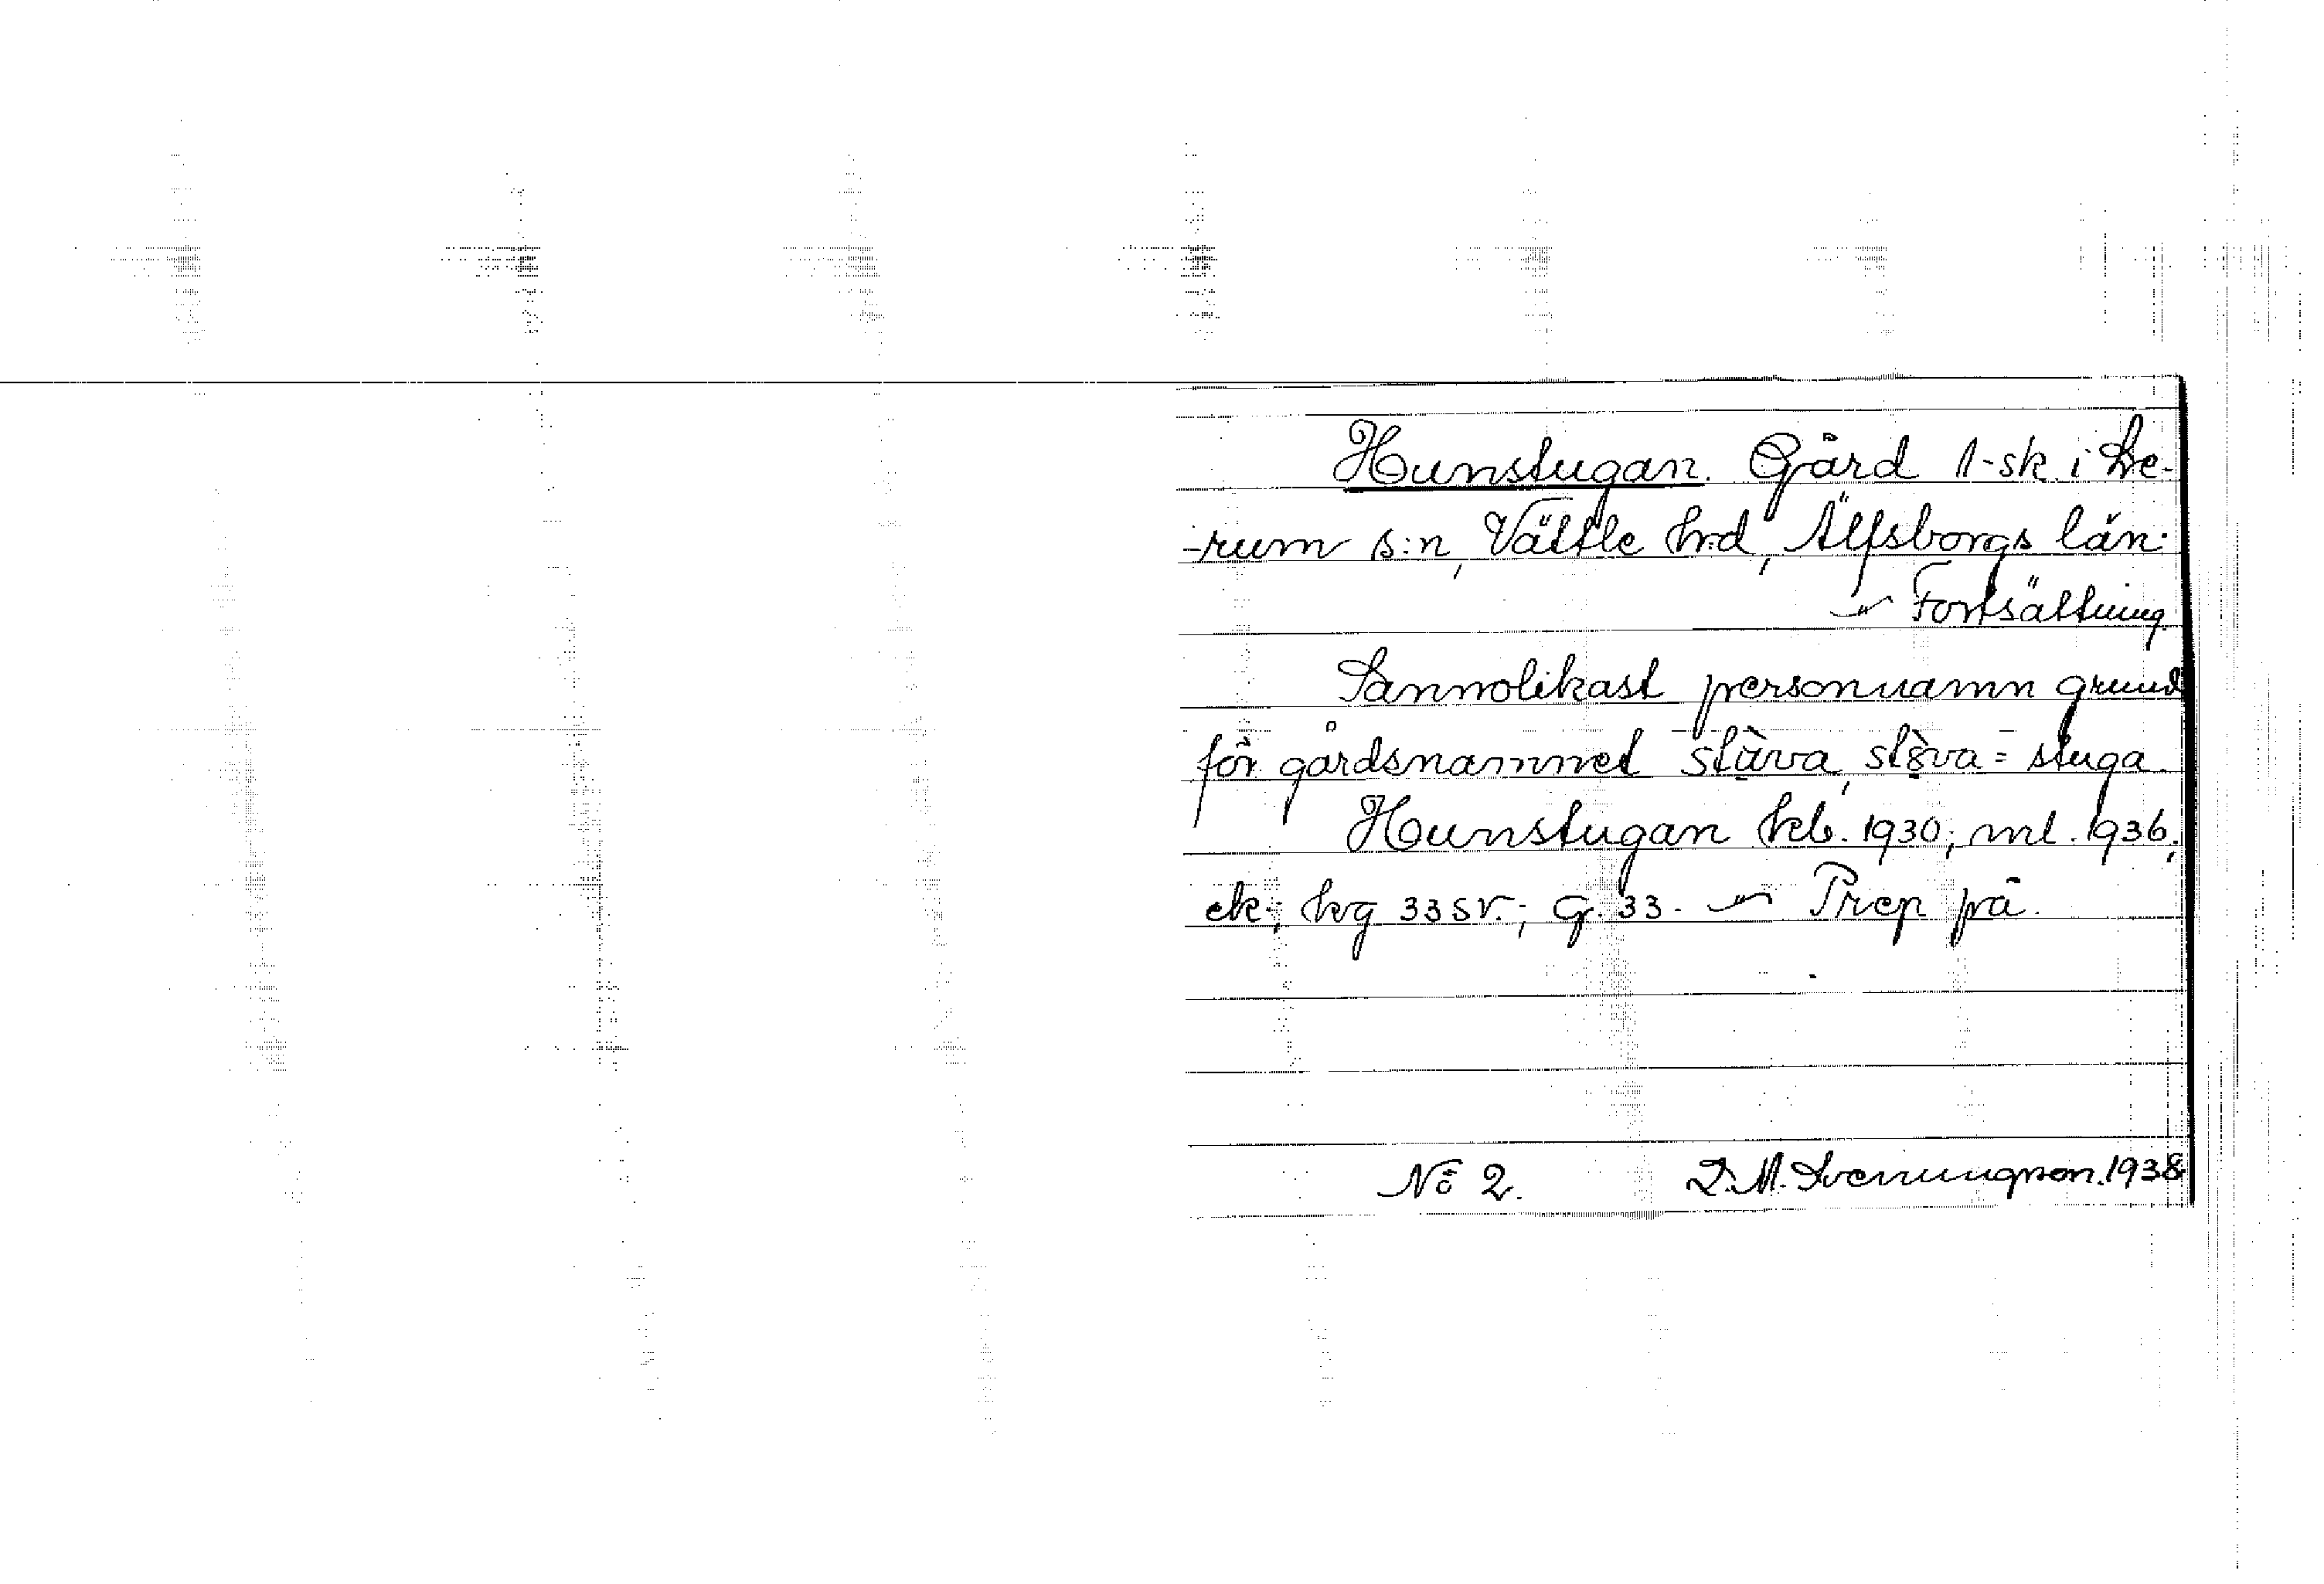 Hunstugan. Gård 1-sk. i Le-
-rum s:n, Vättle hrd, Älfsborgs län.
Fortsättning.
Sannolikast personnamn grund
för gårdsnamnet stùva, stòva = stuga.
Hunstugan hlb. 1930; ml. 1936;
ek; hvg 33 SV.; G. 33. – Prep på.
No 2. D. M. Svenungson. 1938